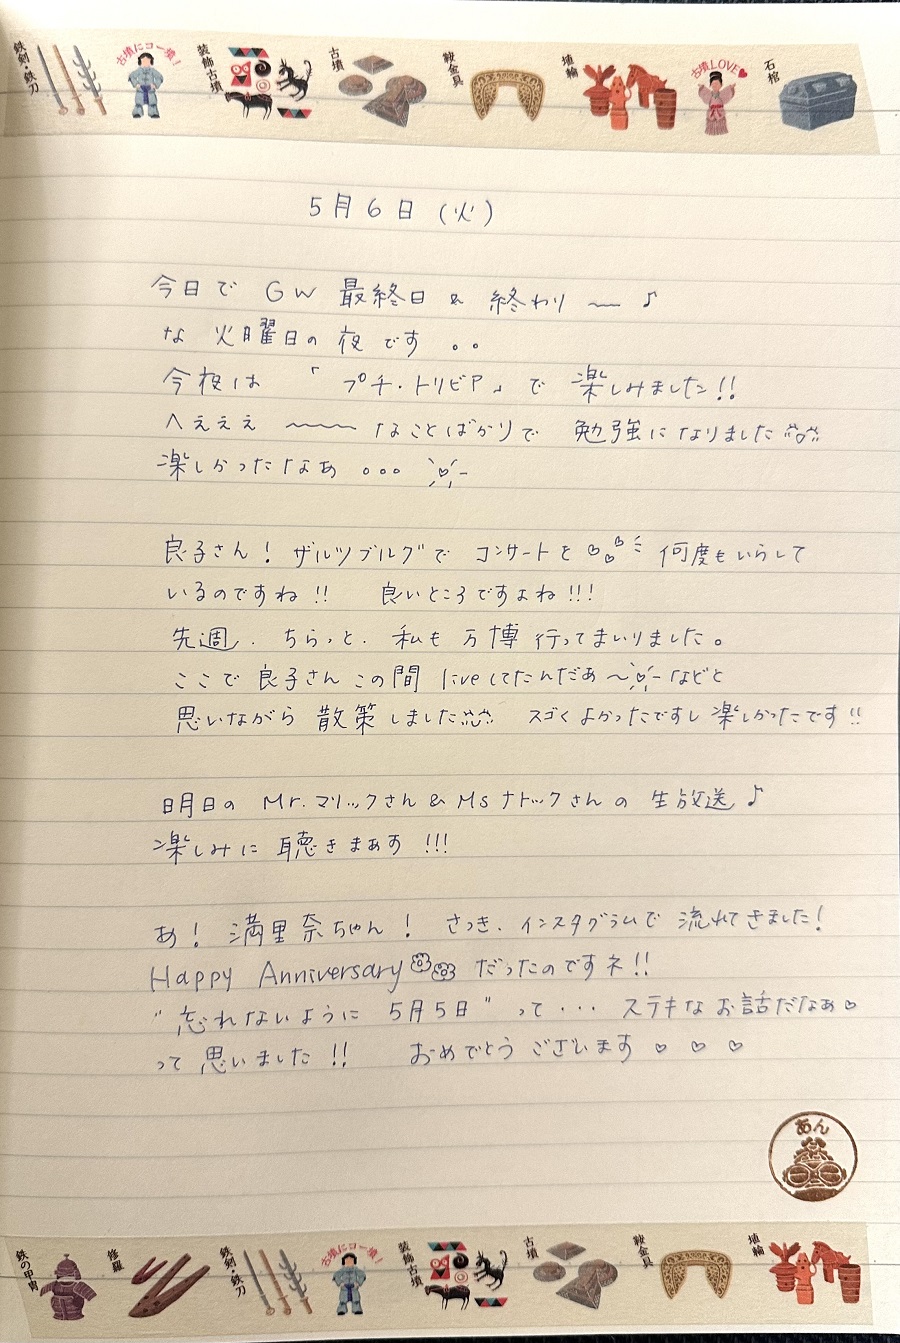 鉄剣・鉄刀
古墳にコー墳!
装飾古墳
古墳
鞍金具
埴輪
古墳LOVE♥
石棺
5月6日(火)
今日で GW 最終日 & 終わり 〜〜 ♪
な 火曜日の 夜 です 。。
今夜は 「プチ・トリビア」で 楽しみました!!
へぇぇぇ 〜〜〜〜 なことばかりで 勉強になりました
楽しかったなあ 。。。
良子さん! ザルツブルグで コンサートと 何度もいらして
いるのですね!! 良いところですよね!!!
先週、ちらっと、私も 万博 行ってまいりました。
ここで 良子さん この間 liveしてたんだあ〜 などと
思いながら 散策 しました スゴくよかったですし 楽しかったです!!
明日の Mr.マリックさん & Ms ナトックさんの 生放送♪
楽しみに 聴きまぁす!!!
あ! 満里奈ちゃん! さっき、インスタグラムで 流れてきました!
Happy Anniversary だったのですネ!!
"忘れないように 5月5日" って・・・ ステキなお話だなぁ♡
って 思いました!! おめでとう ございます ♡ ♡ ♡
あん
鉄の甲冑
修羅
鉄剣・鉄刀
古墳にコー墳!
装飾古墳
古墳
鞍金具
埴輪